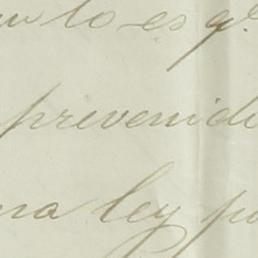 to es q.e
prevenido
na ley po